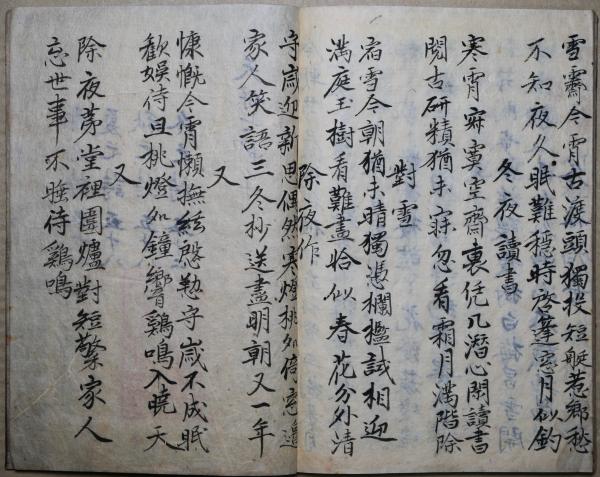 雪霽今宵古渡頭獨投短艇惹鄉愁
不知夜久眠難穩時啓蓬窓月似鈎
冬夜讀書
寒宵寂寞空齋裏凭几潛心閑讀書
閱古研精猶未寐忽看霜月滿階除
對雪
宿雪今朝猶未晴獨憑欄檻試相迎
滿庭玉樹看難盡恰似春花分外清
除夜作
守歳迎新思偶然寒燈挑
家人笑語三冬抄送盡明朝又一年
又
慷慨今宵懶撫絃慇勤守歳不成眠
歡娯待旦挑燈坐鐘響鷄鳴入曉天
又
除夜茅堂裡圍爐對短檠家人
忘世事不睡待鷄鳴